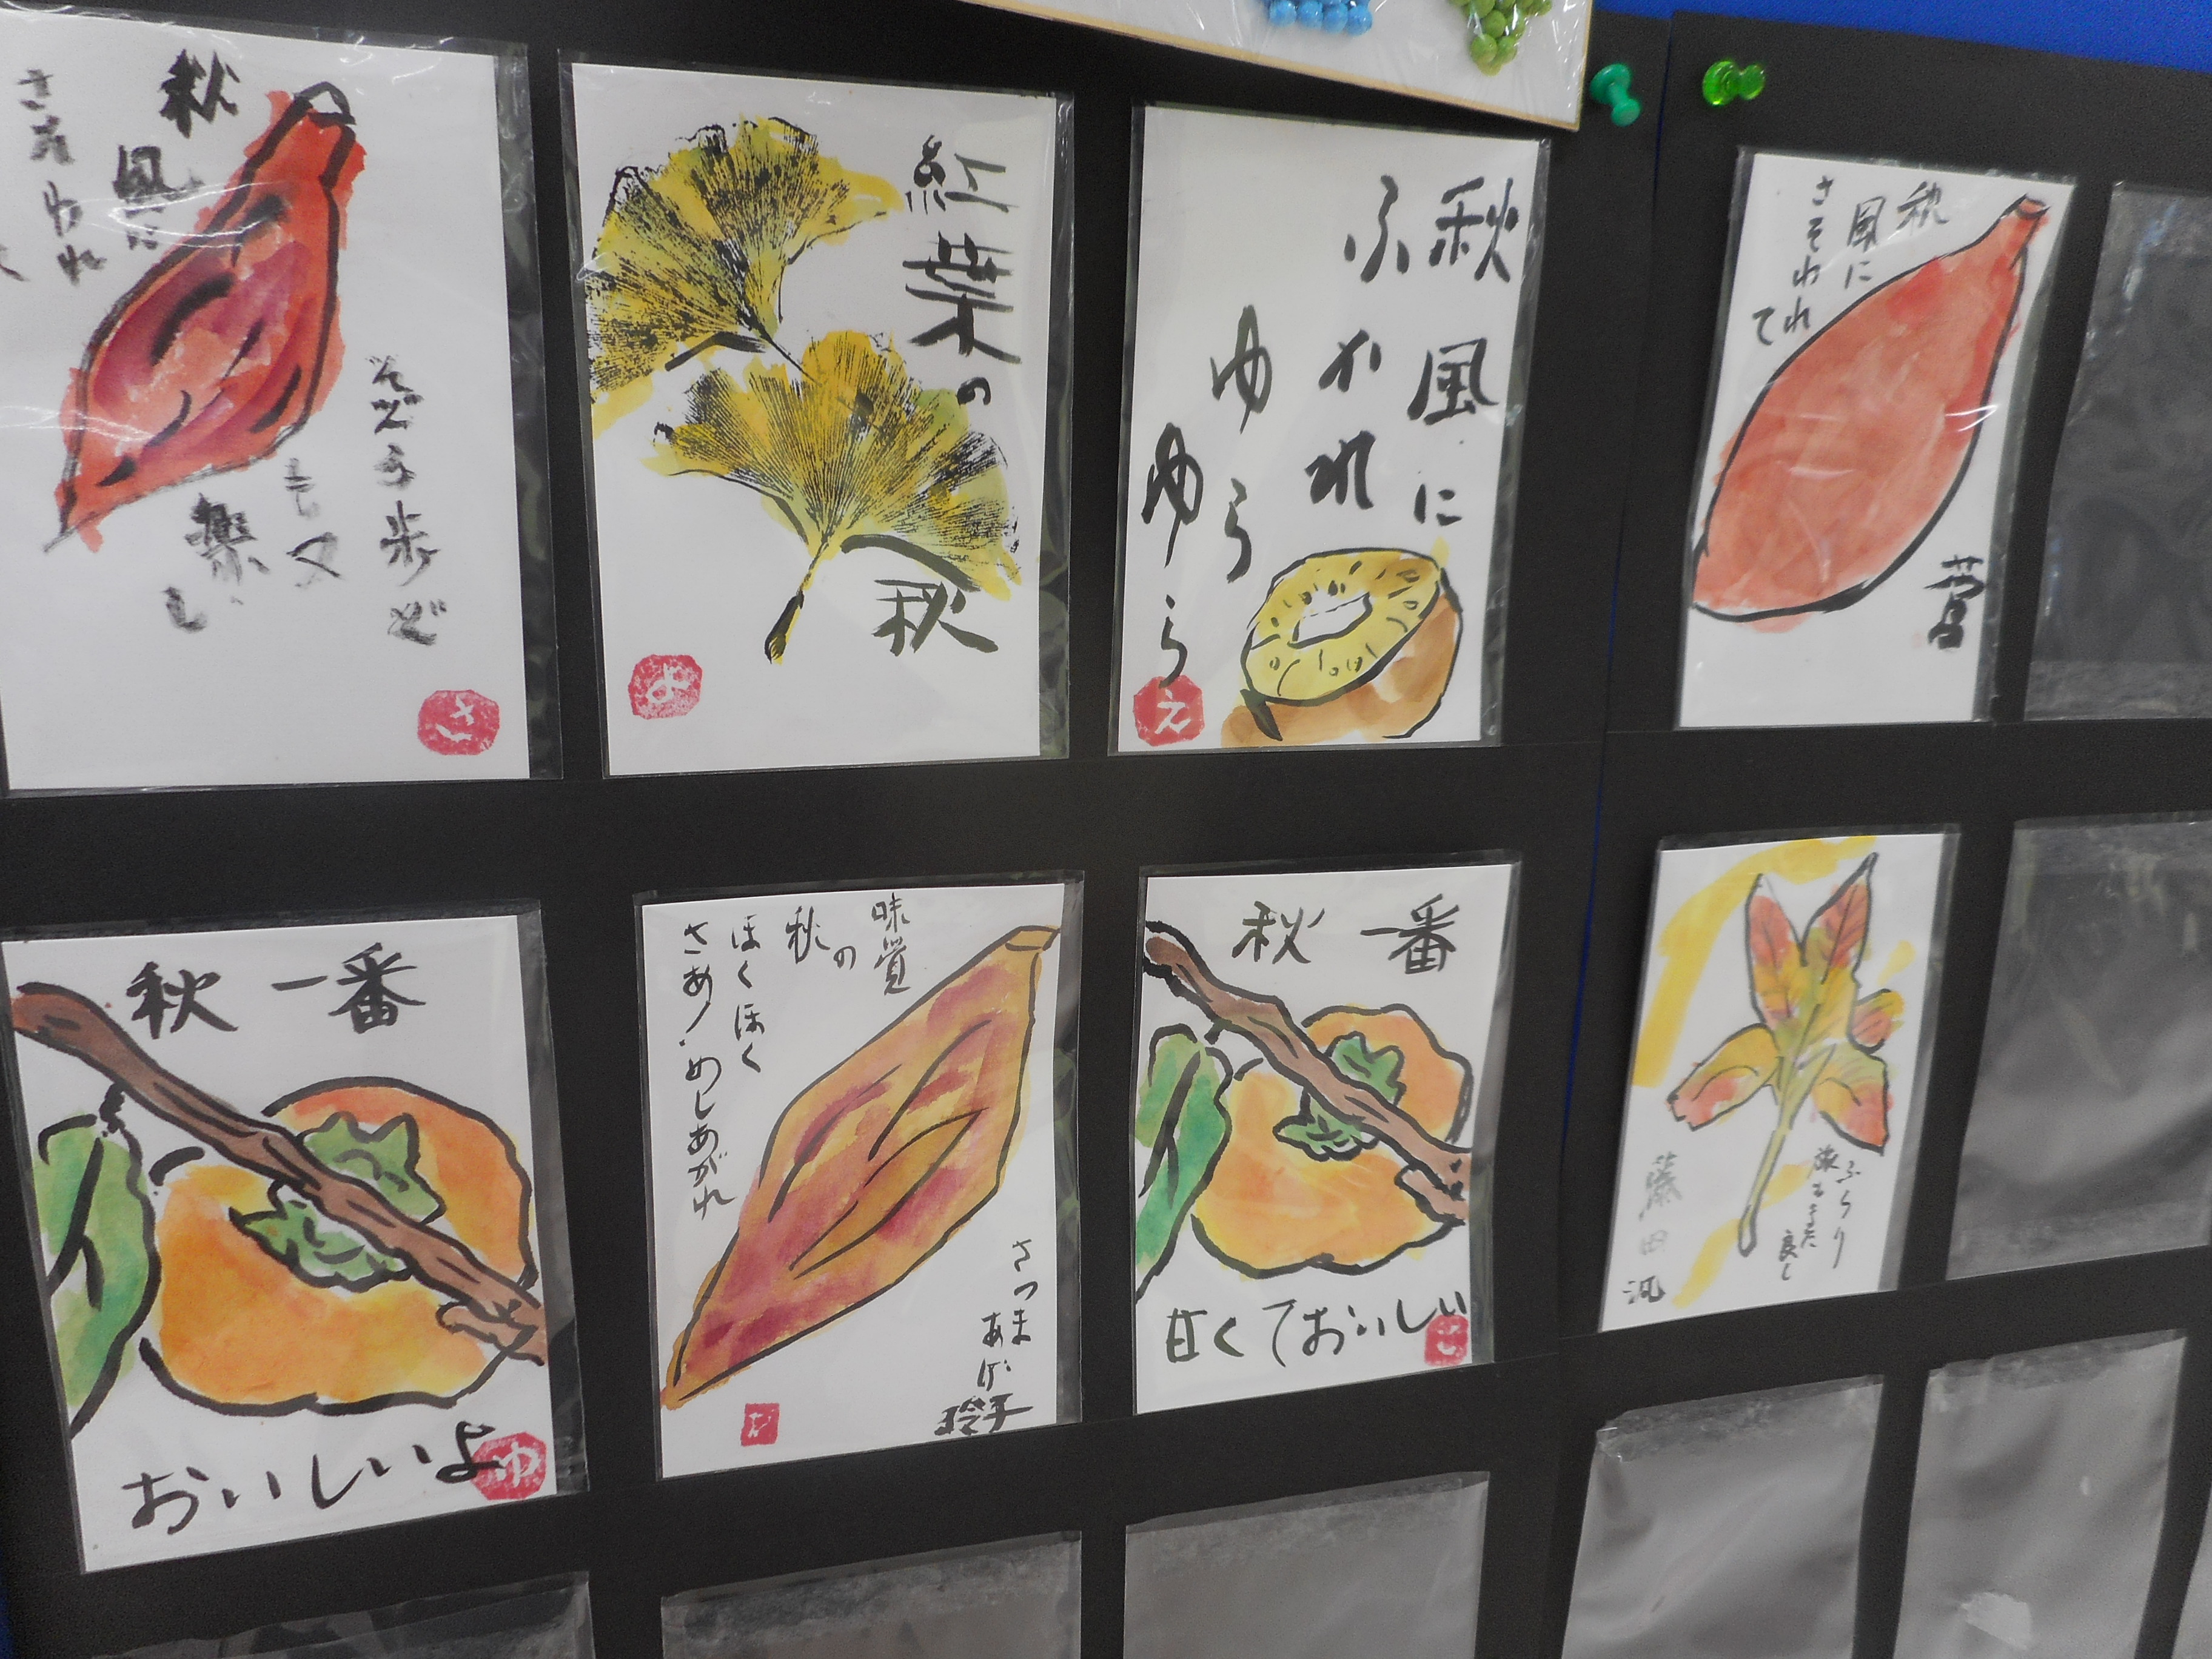 秋
風に
さそわれ
そぞろ歩
も又
楽し
さ
紅葉の
秋
よ
秋風に
ふかれ
ゆら
ゆら
え
秋
風に
さそわれ
て
秋一番
おいしいよ
ゆ
味覚
の
秋
ほくほく
さあ!めしあがれ
さつま
あげ
玲子
秋一番
甘くておいしい
こ
ふらり
旅もまた
良し
藤田